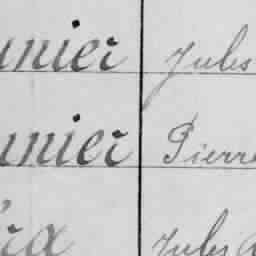 unier Jules
unier Pierre
ra Jules